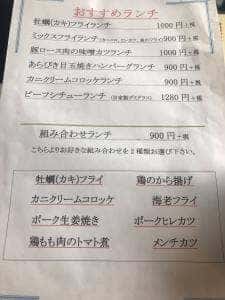 おすすめランチ
牡蠣(カキ)フライランチ 1000円+税
ミックスフライランチ 900円+税
豚ロース肉の味噌カツランチ 1000円+税
あらびき目玉焼きハンバーグランチ 900円+税
カニクリームコロッケランチ 900円+税
ビーフシチューランチ (自家製デミグラス) 1280円+税
組み合わせランチ 900円+税
こちらよりお好きな組み合わせを2種類お選び下さい。
牡蠣(カキ)フライ 鶏のから揚げ
カニクリームコロッケ 海老フライ
ポーク生姜焼き ポークヒレカツ
鶏もも肉のトマト煮 メンチカツ